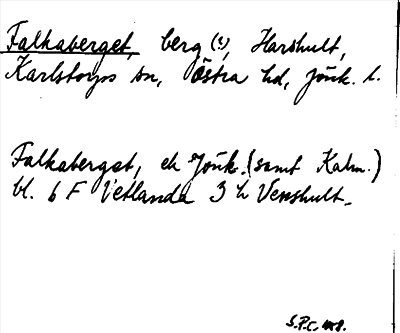 Falkaberget, berg (?), Harshult,
Karlstorps sn, Östra hd, Jönk. l.
Falkaberget, ek Jönk. (samt Kalm.)
bl. 6 F Vetlanda 3 h Venshult.
S.P.C.